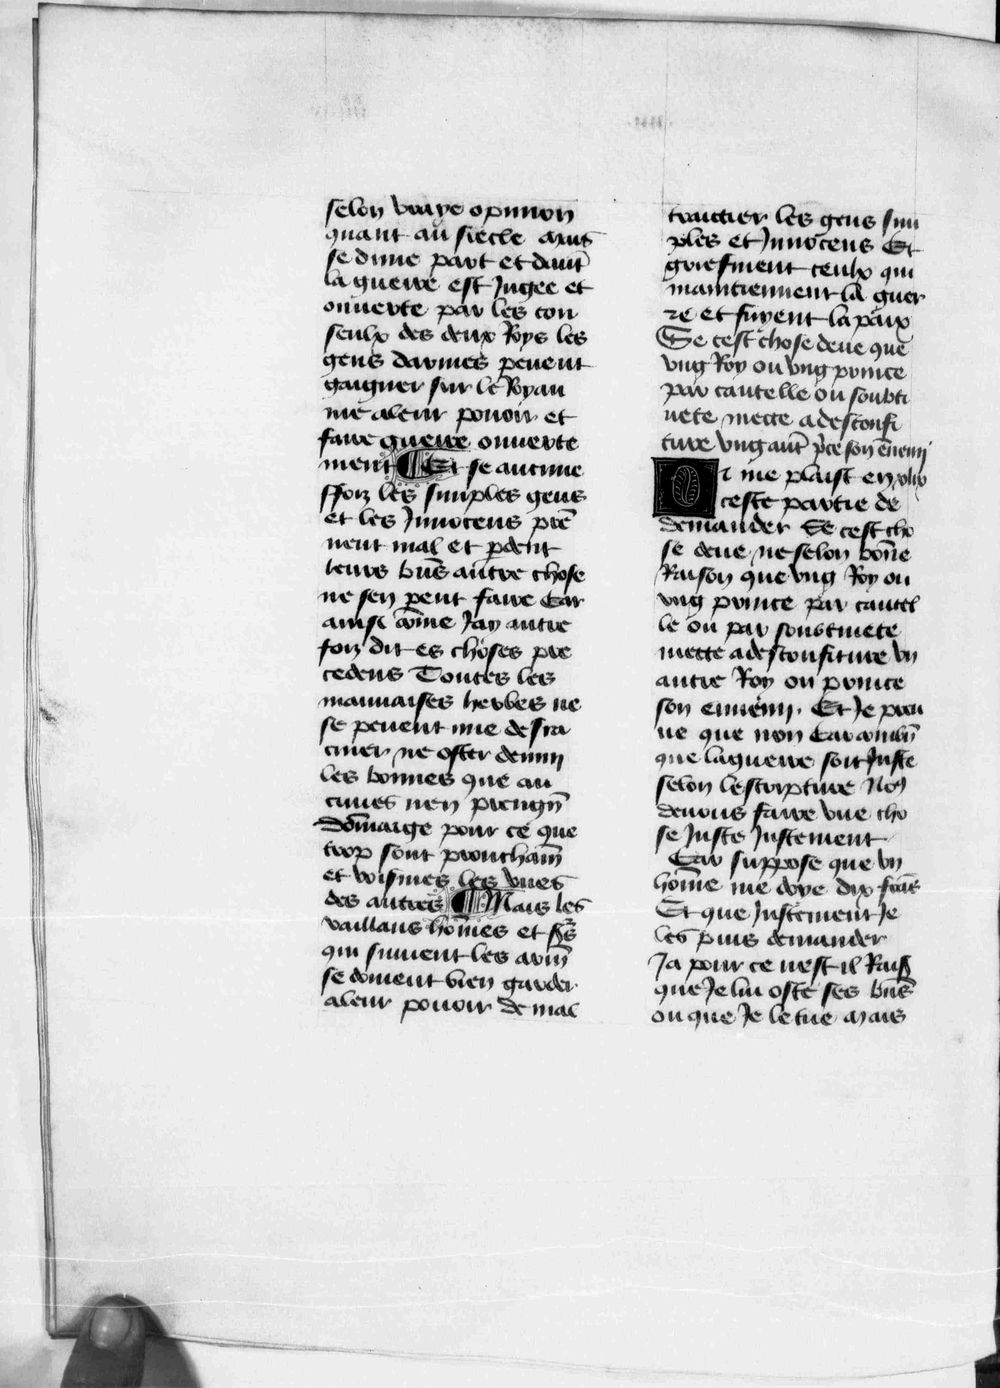 selon vraye opinion
quant au siecle mais
se dune part et daut̄
la guerre est Jugee et
ouuerte par les con
seulx des deux Roys les
gens darmes peuent
gaigner sur le Royau
me aleur pouoir et
faire guerre ouuerte
ment ¶ Et se aucune
ffoiz les simples gens
et les Jnnocens prē
nent mal et perdent
leurs biēs autre chose
ne sen peut faire Car
ainsi cōme Jay autre
foiz dit es choses pre
cedens Toutes les
mauuaises herbes ne
se peuent mie desra
ciner ne oster demy
les bonnes que au
cunes nen prengn̄
dōmaige pour ce que
trop sont prouchaīn
et voisines les vnes
des autres ¶ Mais les
vaillans hōmes et
qui suiuent les arm̄
se doiuent bien garder
aleur pouoir de mal
traictier les gens sim
ples et Jnnocens Et
griefment ceulx qui
maintiennent la guer
re et fuyent la paix
Se cest chose deue que
vng Roy ou vng prince
par cautelle ou soubti
uete mette a desconfi
ture vng aut̄ pr̄ce son ēnemi
Or me plaist en
ceste partie de
demander Se cest cho
se deue ne selon bōne
Raison que vng Roy ou
vng prince par cautel
le ou par soubtiuete
mette a desconfiture vn
autre Roy ou prince
son ennemi. Et Je preu
ue que non Car combn̄
que la guerre soit Juste
selon lescripture No9
deuons faire vne cho
se Juste Justement
Car suppose que vn
hōme me doye dix frās
Et que Justement Je
les puis demander
Ja pour ce nest il Rais
que Je lui oste ses biēs
ou que Je le tue Mais